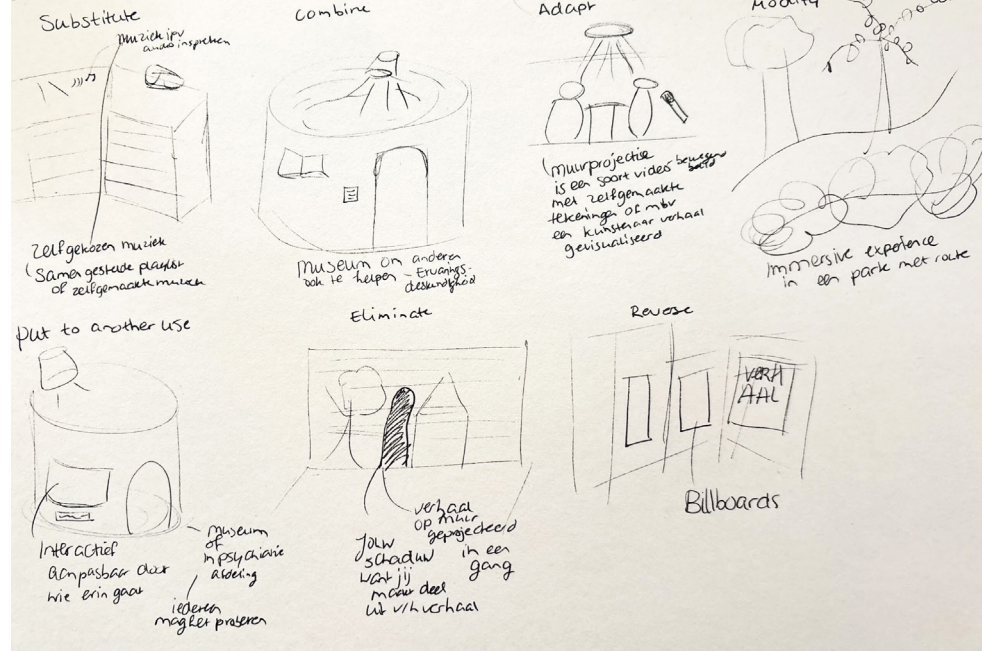 Substitute
muziek ipv
audio inspreken
zelfgekozen muziek
Samengestelde playlist
of zelfgemaakte muziek
Combine
museum om anderen
ook te helpen - Ervarings-
deskundigheid
Adapt
muurprojectie
is een soort video bewegend beeld
met zelfgemaakte
tekeningen of mbv
een kunstenaar verhaal
gevisualiseerd
Modify
Immersive experience
in een park met route
put to another use
Interactief
aanpasbaar door
wie erin gaat
museum
of
in psychiatrie
afdeling
iedereen
mag het proberen
Eliminate
verhaal
op muur
geprojecteerd
in een
gang
Jouw
schaduw
want jij
maakt deel
uit v/h verhaal
Reverse
VERH
AAL
Billboards